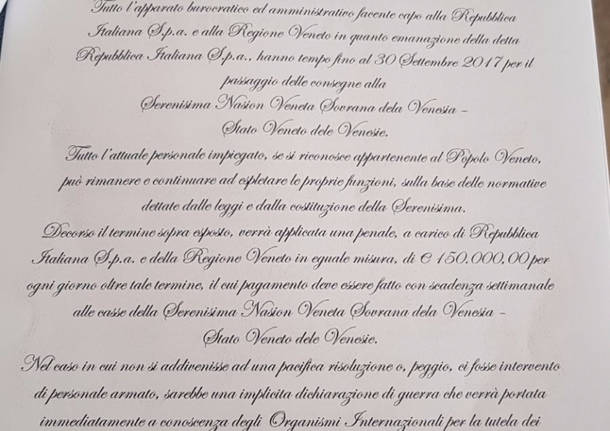 Tutto l'apparato burocratico ed amministrativo facente capo alla Repubblica
Italiana S.p.a. e alla Regione Veneto in quanto emanazione della detta
Repubblica Italiana S.p.a., hanno tempo fino al 30 Settembre 2017 per il
passaggio delle consegne alla
Serenisima Nasion Veneta Sovrana dela Venesia –
Stato Veneto dele Venesie.
Tutto l'attuale personale impiegato, se si riconosce appartenente al Popolo Veneto,
può rimanere e continuare ad espletare le proprie funzioni, sulla base delle normative
dettate dalle leggi e dalla costituzione della Serenisima.
Decorso il termine sopra esposto, verrà applicata una penale, a carico di Repubblica
Italiana S.p.a. e della Regione Veneto in eguale misura, di € 150.000,00 per
ogni giorno oltre tale termine, il cui pagamento deve essere fatto con scadenza settimanale
alle casse della Serenisima Nasion Veneta Sovrana dela Venesia –
Stato Veneto dele Venesie.
Nel caso in cui non si addivenisse ad una pacifica risoluzione o, peggio, ci fosse intervento
di personale armato, sarebbe una implicita dichiarazione di guerra che verrà portata
immediatamente a conoscenza degli Organismi Internazionali per la tutela dei